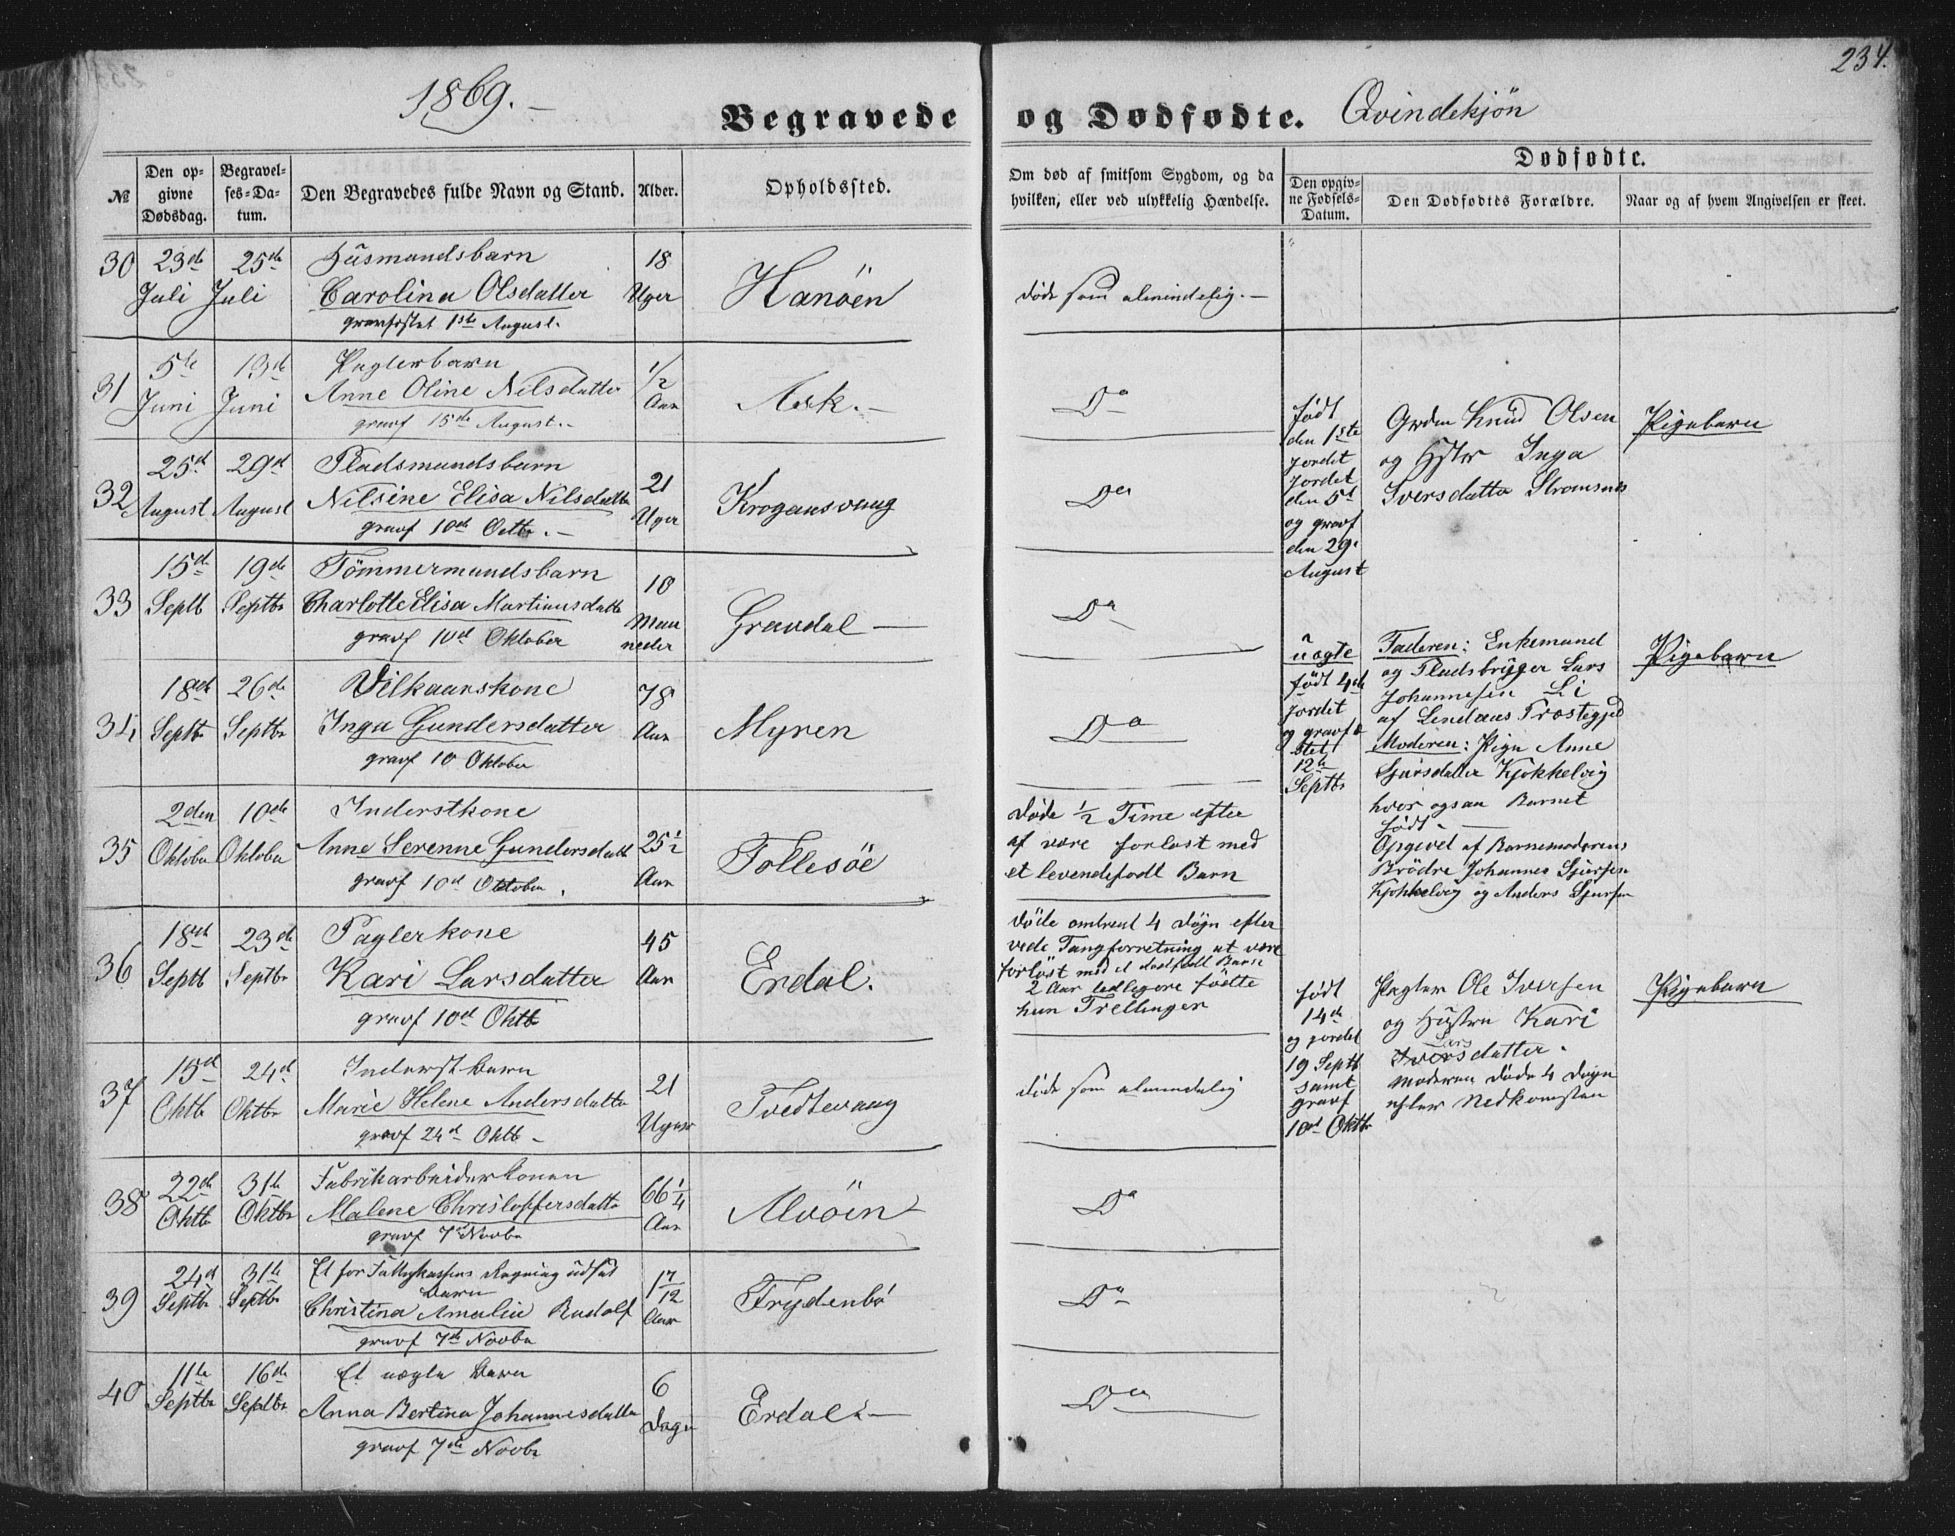 1869.
234.
Begravede og Dødfødte. Qvindekjön
№
Den opgivne Dødsdag.
Begravelses-Datum.
Den Begravedes fulde Navn og Stand.
Alder.
Opholdssted.
Om død af smitsom Sygdom, og da hvilken, eller ved ulykkelig Hændelse.
Dødfødte.
Den opgivne Fødsels-Datum.
Den Dødfødtes Forældre.
Naar og af hvem Angivelsen er skeet.
30 23de Juli 25de Juli
Husmandsbarn
Carolina Olsdatter
gravfestet 1ste August.
18 Uger
Hanöen
døde som almindelig.
31 5te Juni 13de Juni
Paglerbarn
Anne Oline Nilsdatter
gravf 15de August.
1/2 Aar
Ask.
Do
32 25de August 29de August
Pladsmandsbarn
Nilsine Elisa Nilsdatter
gravf 10de Octbr.
21 Uger
Krogansvaag
Do
33 15de Septb 19de Septbr
Tömmermandsbarn
Charlotte Elisa Martinusdatter
gravf 10de Oktober
10 Maaneder
Gravdal
Do
34 18de Septbr 26de Septbr
Vilkaarskone
Inga Gundersdatter
gravf 10 Oktober
78 Aar
Myren
Do
35 2den Oktober 10de Oktober
Inderstkone
Anne Serenne Gundersdatter
gravf 10de Oktober.
25 1/2 Aar
Follesöe
Døde 1/2 Time efter
af være forløst med
et levendefødt Barn
36 18de Septb 23de Septbr
Paglerkone
Kari Larsdatter
gravf 10de Oktb
45 Aar
Erdal.
døde omtrent 4 Døgn efter
vede Tangforretning at være
forløst med et dødfødt Barn
2 Aar tidligere fødte
hun Trellinger
37 15de Oktb 24de Oktbr
Inderstbarn
Marie Helene Andersdatter
gravf 24de Oktb
21 Uger
Tvedtevaag
døde som almindelig
38 22de Oktbr 31te Oktbr
Fabrikarbeiderkonen
Malene Christoffersdatter
gravf 7de Novbr
66 1/4 Aar
Alvöen
Do
39 24de Septbr 31te Septbr
Et for Fattigkassens Regning udsat
Barn
Christina Amalie Rudolf
gravf 7de Novbr
17/12 Aar
Frydenbö
Do
40 11te Septbr 16de Septbr
Et uægte Barn
Anna Bertina Johannesdatter
gravf 7de Novbr
6 Dage
Erdal
Do
født
den 1ste
jordet
jordet
den 5te
og gravf
den 29.
August
Grdm Knud Olsen
og Hstr Inga
Iversdatter Stromsnes
Pigebarn
uægte
født 4de
jordet
og gravfæ
stet
12te
Septbr
Faderen: Enkemand
og Pladsbruger Lars
Johannesen Li
af Lindaas Prostegjed
Moderen: Pige Anne
Sjursdatter Kjøkkelvig
hvor ogsaa Barnet
født
Opgivet af Barnemoderens
Brödre Johannes Sjursen
Kjøkkelvig og Anders Sjursen
Pigebarn
født
14de
og jordet
19 Septb
samt
gravf
10de Oktbr
Pagler Ole Iversen
og Hustru Kari
Lars
Iversdatter.
Moderen døde 4 Døgn
efter Nedkomsten
Pigebarn